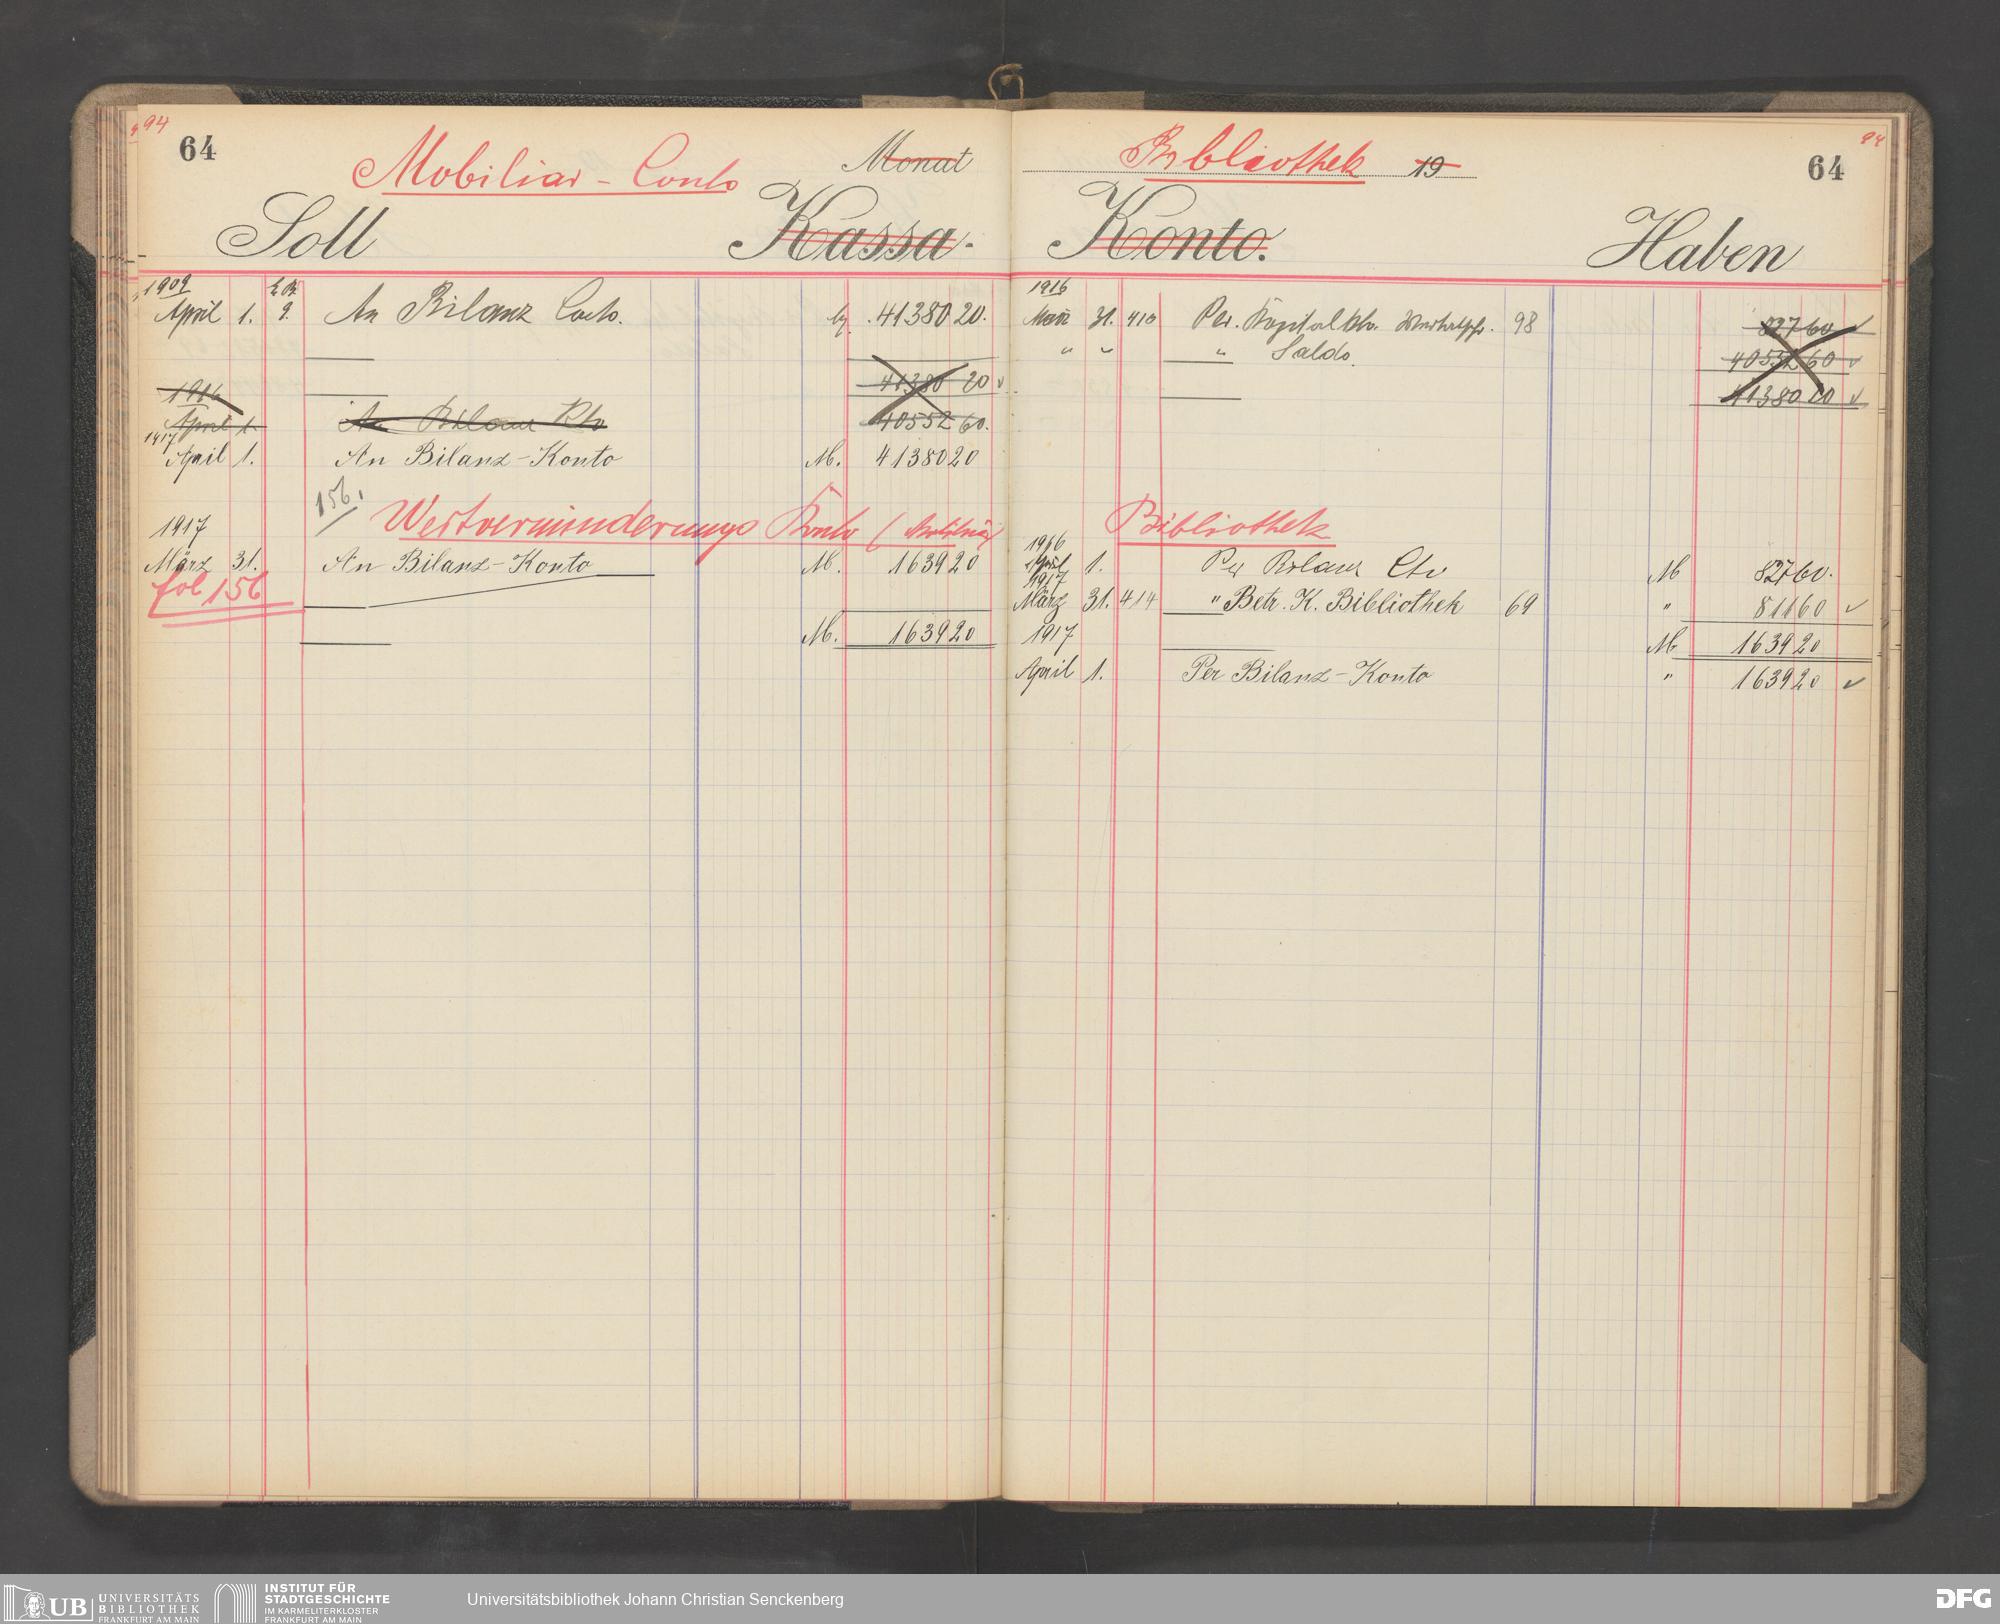 94
64
Mobiliar-Conto
Monat
Soll
Kassa-
1909
April 1. 9. An Bilanz Conto. 41380 20.
41380 20 ✓
1916
April 1. An Bilanz Kto 40552 60.
1917
April 1. An Bilanz-Konto M. 41380 20
156.
Wertverminderungs Konto
1917
März 31. An Bilanz-Konto M. 1639 20
fol 156
M. 1639 20
94
64
Bibliothek 19
Konto.
Haben
1916
März 31. 410 Per. Kapital Kto. 98 827 60 ✓
" " " Saldo. 40552 60 ✓
41380 20 ✓
Bibliothek
1916
April 1. Per Bilanz Cto M 827 60.
1917
März 31. 414 " Betr. K. Bibliothek 69 " 811 60 ✓
M 1639 20
1917
April 1. Per Bilanz-Konto " 1639 20 ✓
UB UNIVERSITÄTS
BIBLIOTHEK
FRANKFURT AM MAIN
INSTITUT FÜR
STADTGESCHICHTE
IM KARMELITERKLOSTER
FRANKFURT AM MAIN
Universitätsbibliothek Johann Christian Senckenberg
DFG